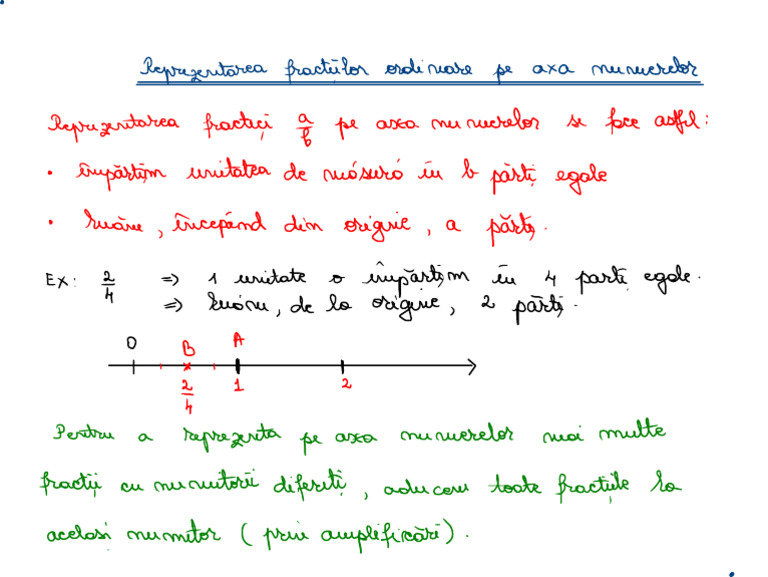 Reprezentarea fracțiilor ordinare pe axa numerelor
Reprezentarea fracției a/b pe axa numerelor se face astfel:
• împărțim unitatea de măsură în b părți egale
• luăm, începând din origine, a părți.
Ex: 2/4 => 1 unitate o împărțim în 4 parti egale.
=> luăm, de la origine, 2 părți.
O B A
2/4 1 2
Pentru a reprezenta pe axa numerelor mai multe
fracții cu numitorii diferiți, aducem toate fracțiile la
acelasi numitor (prin amplificări).